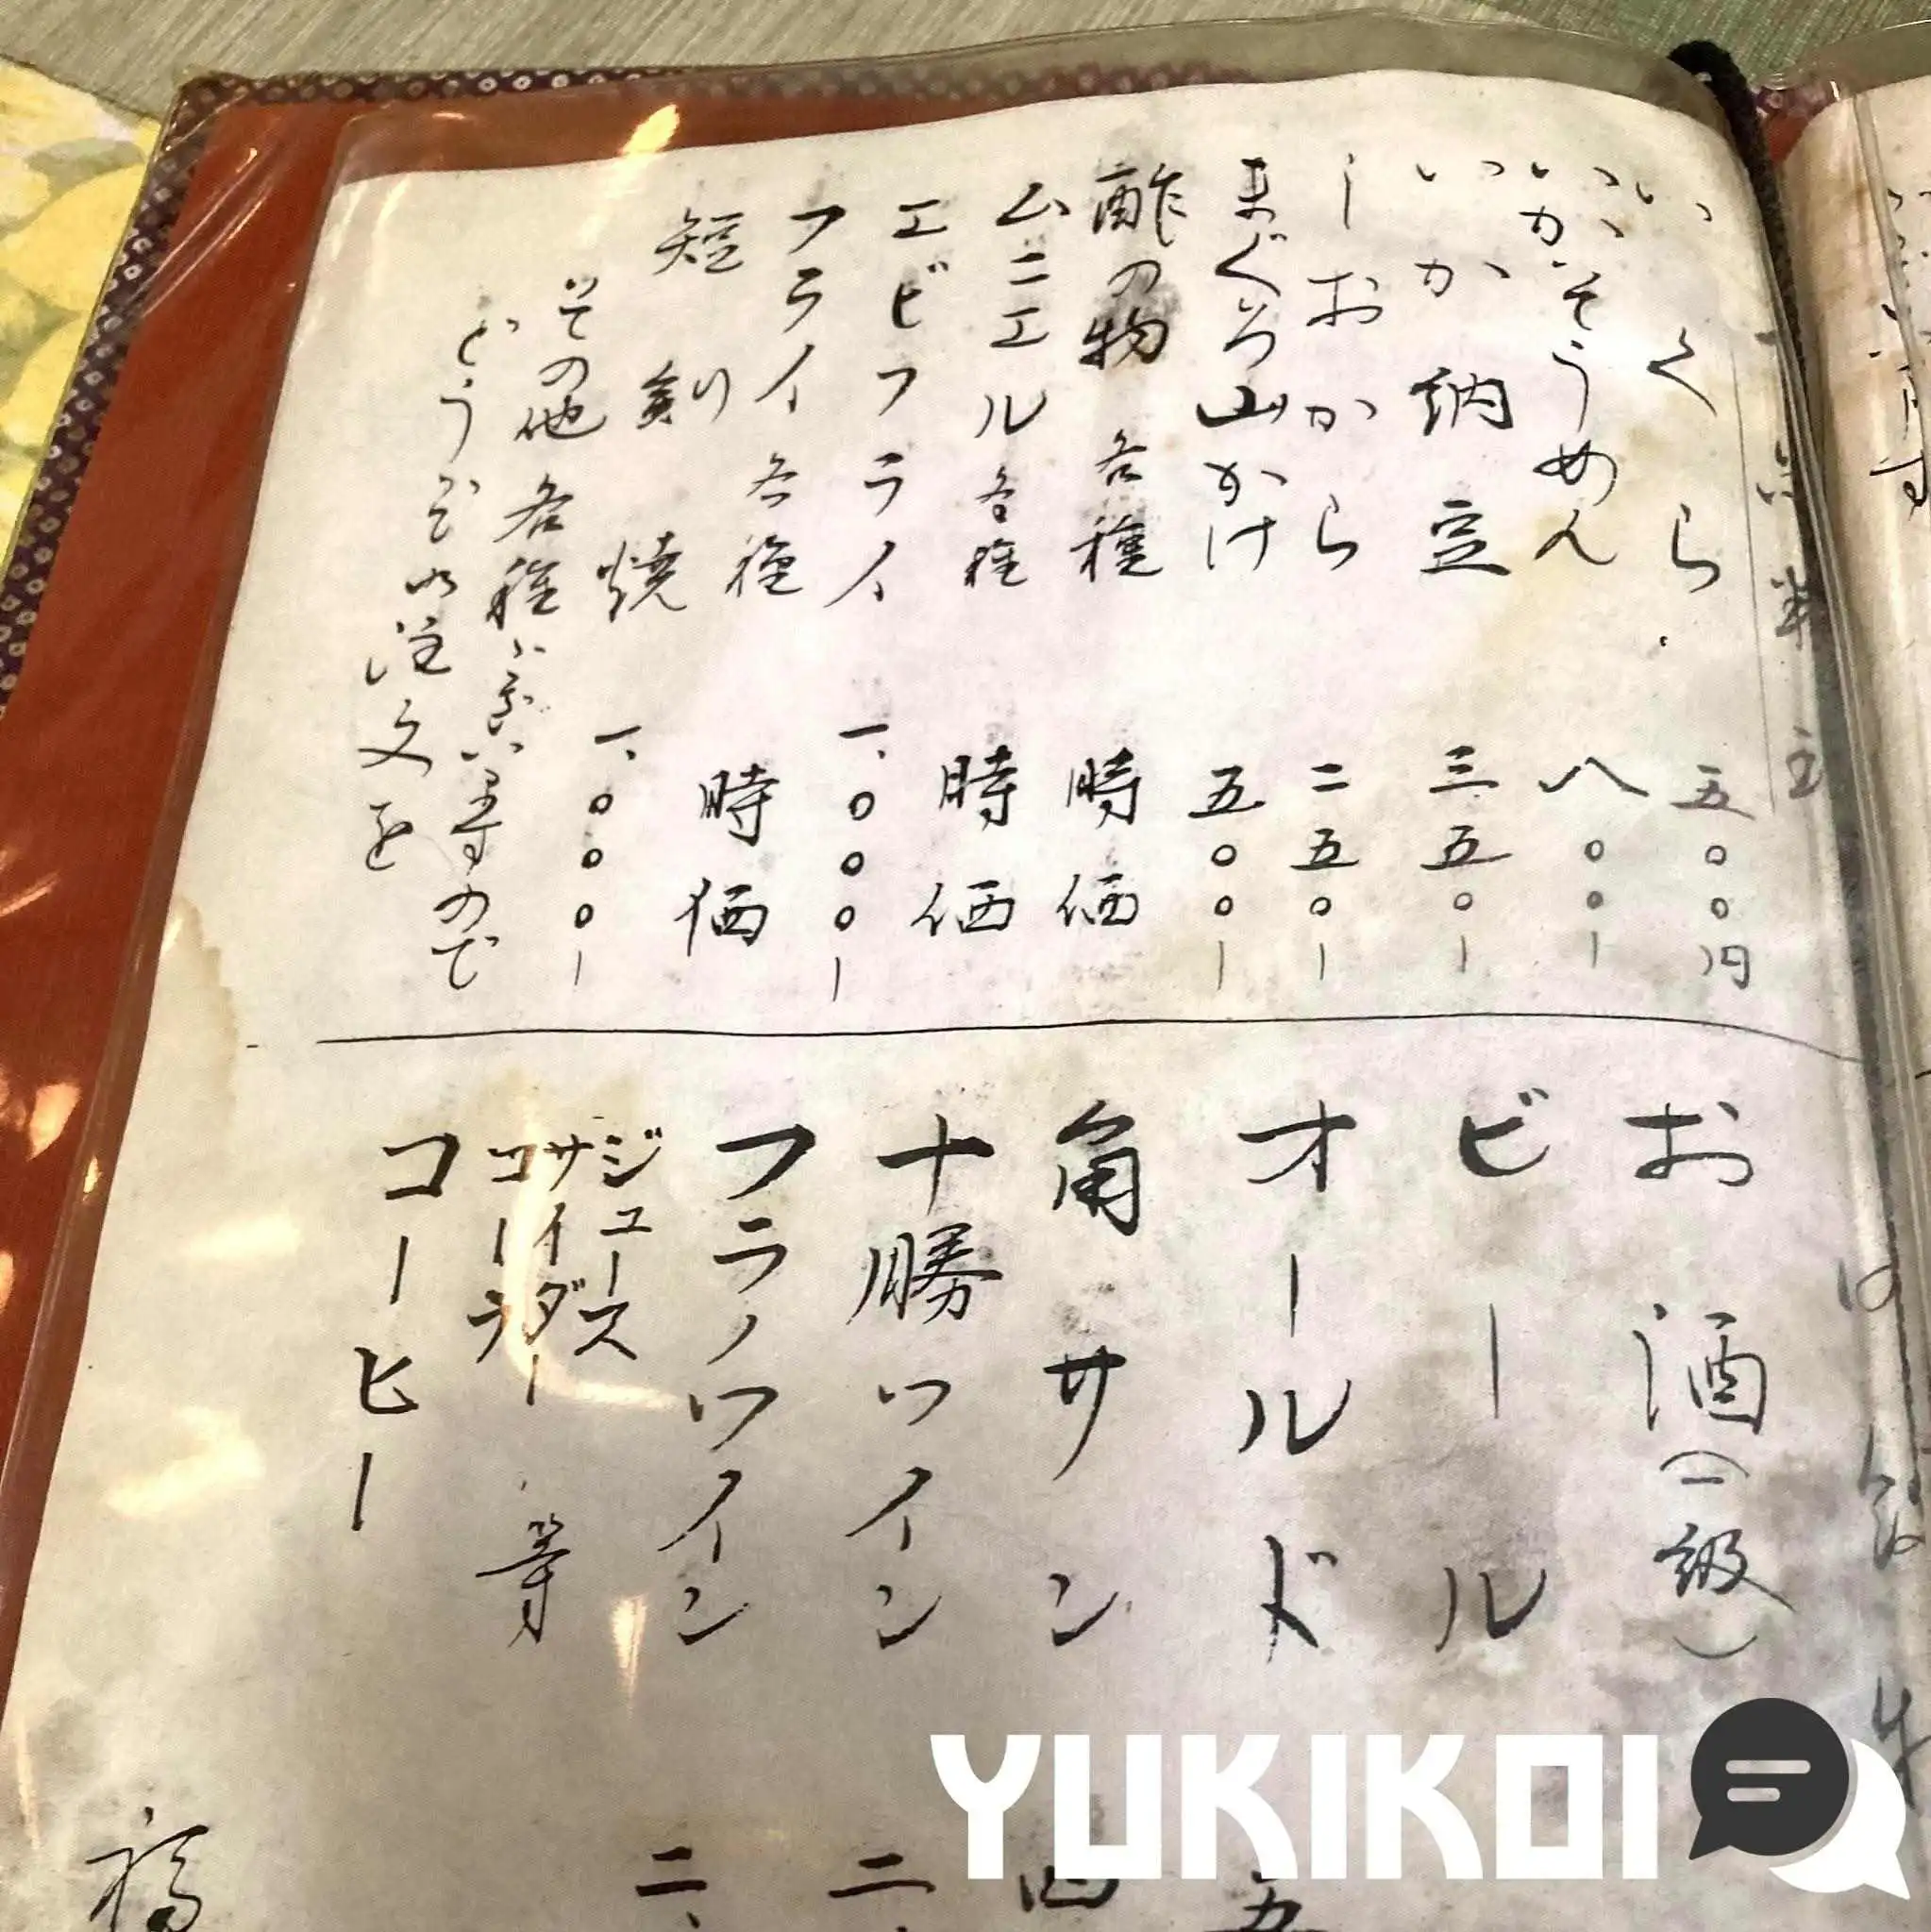 いくら 五〇〇円
いかそうめん 八〇〇-
いか納豆 三五〇-
しおから 二五〇-
まぐろ山かけ 五〇〇-
酢の物 各種 時価
ムニエル各種 時価
エビフライ 一、〇〇〇-
フライ各種 時価
短剣焼 一、〇〇〇-
その他各種ございますので
どうぞ御注文を
お酒(一級)
ビール
オールド
角サン
十勝ワイン
フラノワイン
ジュース
サイダー
コーラ
等
コーヒー
五
四
二、
二、
福
YUKIKOI